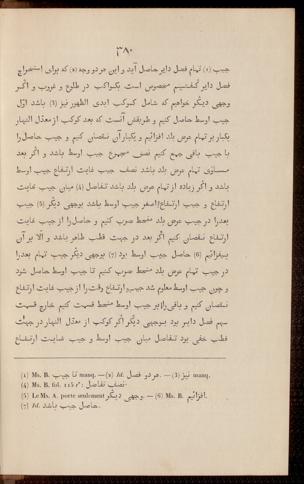 ٣٨٠
جیب (١) تمام فضل دایر حاصل آید و این هر دو وجه (٢) که برای استخراج
فضل دایر گفتیم مخصوص است بکواکب در طلوع و غروب و اگر
وجهی دیگر خواهیم که شامل کوکب ابدی الظهور نیز (٣) باشد اول
جیب اوسط حاصل کنیم و طریقش آنست که بعد کوکب از معدل النهار
یکبار بر تمام عرض بلد افزائیم و یکبار آن نقصان کنیم و جیب حاصل را
با جیب باقی جمع کنیم نصف مجموع جیب اوسط باشد و اگر بعد
مساوی تمام عرض بلد باشد نصف جیب غایت ارتفاع جیب اوسط
باشد و اگر زیاده از تمام عرض بلد باشد تفاضل (4) میان جیب غایت
ارتفاع و جیب ارتفاع اصغر جیب اوسط باشد بوجهی دیگر (5) جیب
بعد را در جیب عرض بلد منحط ضرب کنیم و حاصل را از جیب غایت
ارتفاع نقصان کنیم اگر بعد در جهت قطب ظاهر باشد و الا بر آن
بیفزائیم (6) حاصل جیب اوسط بود (7) بوجهی دیگر جیب تمام بعد را
در جیب تمام عرض بلد منحط ضرب کنیم تا جیب اوسط حاصل شود
و چون جیب اوسط معلوم شد جیب ارتفاع وقت را از جیب غایت ارتفاع
نقصان کنیم و باقی را بر جیب اوسط منحط قسمت کنیم خارج قسمت
سهم فضل دایر بود بوجهی دیگر اگر کوکب از معدل النهار در جهت
قطب خفی بود تفاضل میان جیب اوسط و جیب غایت ارتفاع
(1) Ms. B. تا جیب manq. — (2) Id. هر دو فضل. — (3) نیز manq.
(4) Ms. B. fol. 115 r°: نصف تفاضل.
(5) Le Ms. A. porte seulement وجهی دیگر. — (6) Ms. B. افزائیم.
(7) Id. حاصل جیب باشد.